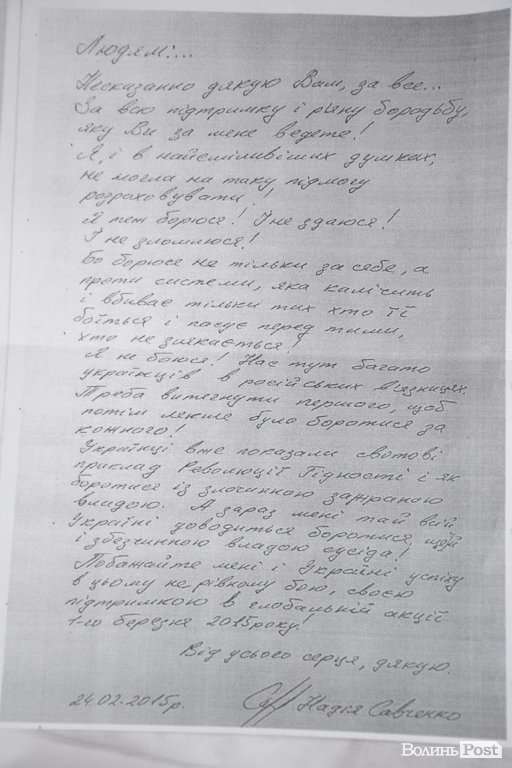 Людям!...
Несказанно дякую Вам, за все...
За всю підтримку і рівну бородьбу,
яку Ви за мене ведете!
Я, і в найсміливіших думках,
не могла на таку підмогу
розраховувати!
Я теж борюся! І не здаюся!
І не зломлюся!
Бо борюсе не тільки за себе, а
проти системи, яка калічить
і вбиває тільки тих хто її
боїться і пасує перед тими,
хто не злякається!
Я не боюся! Нас тут багато
українців в російських в'язницях.
Треба витягнути першого, щоб
потім легше було боротися за
кожного!
Українці вже показали світові
приклад Революції Гідності і як
боротися із злочинною зажраною
владою. А зараз мені тай всій
Україні доводиться боротися щей
і збезчинною владою сусіда!
Побажайте мені і Україні успіху
в цьому не рівному бою, своєю
підтримкою в глобальній акції
1-го березня 2015 року!
Від усього серця, дякую.
24.02.2015р. Надія Савченко
Волинь Post